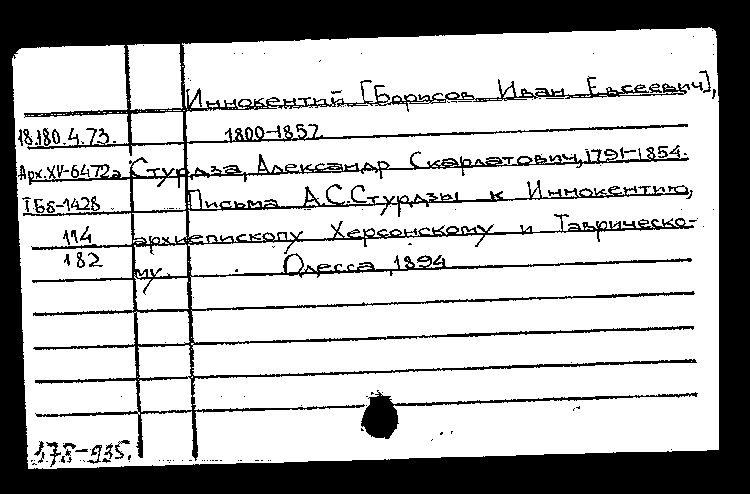 Иннокентий [Борисов Иван Евсеевич],
18.180.4.73. 1800-1857
Арх.XV-6472а Стурдза, Александр Скарлатович, 1791-1854.
Письма А.С.Стурдзы к Иннокентию,
114 архиепископу Херсонскому и Таврическо-
182 му. Одесса, 1894
178-935.